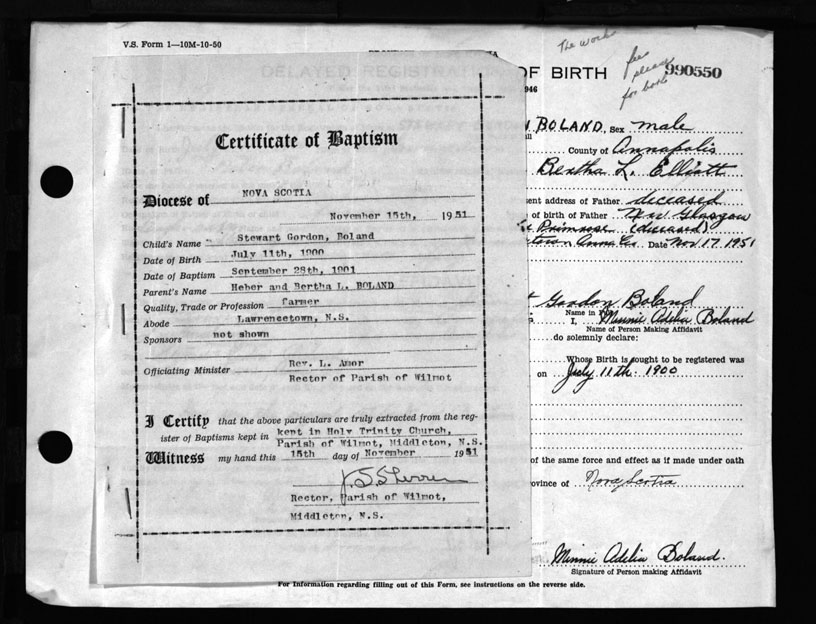 V.S. Form 1—10M-10-50
The work
fee
please
for both
DELAYED REGISTRATION OF BIRTH 990550
1946
Certificate of Baptism
Diocese of NOVA SCOTIA
November 15th, 1951
Child's Name Stewart Gordon, Boland
Date of Birth July 11th, 1900
Date of Baptism September 28th, 1901
Parent's Name Heber and Bertha L. BOLAND
Quality, Trade or Profession farmer
Abode Lawrencetown, N.S.
Sponsors not shown
Officiating Minister Rev. L. Amor
Rector of Parish of Wilmot
I Certify that the above particulars are truly extracted from the reg-
ister of Baptisms kept in kept in Holy Trinity Church,
Parish of Wilmot, Middleton, N.S.
Witness my hand this 15th day of November 1951
Rector, Parish of Wilmot,
Middleton, N.S.
BOLAND, Sex male
County of Annapolis
Bertha L. Elliott
ent address of Father deceased
of birth of Father New Glasgow
Primrose (deceased)
Date Nov 17 1951
Gordon Boland
I, Minnie Adelia Boland
Name of Person Making Affidavit
do solemnly declare:
Whose Birth is sought to be registered was
on July 11th 1900
of the same force and effect as if made under oath
ovince of Nova Scotia
Minnie Adelia Boland
Signature of Person making Affidavit
For Information regarding filling out of this Form, see instructions on the reverse side.